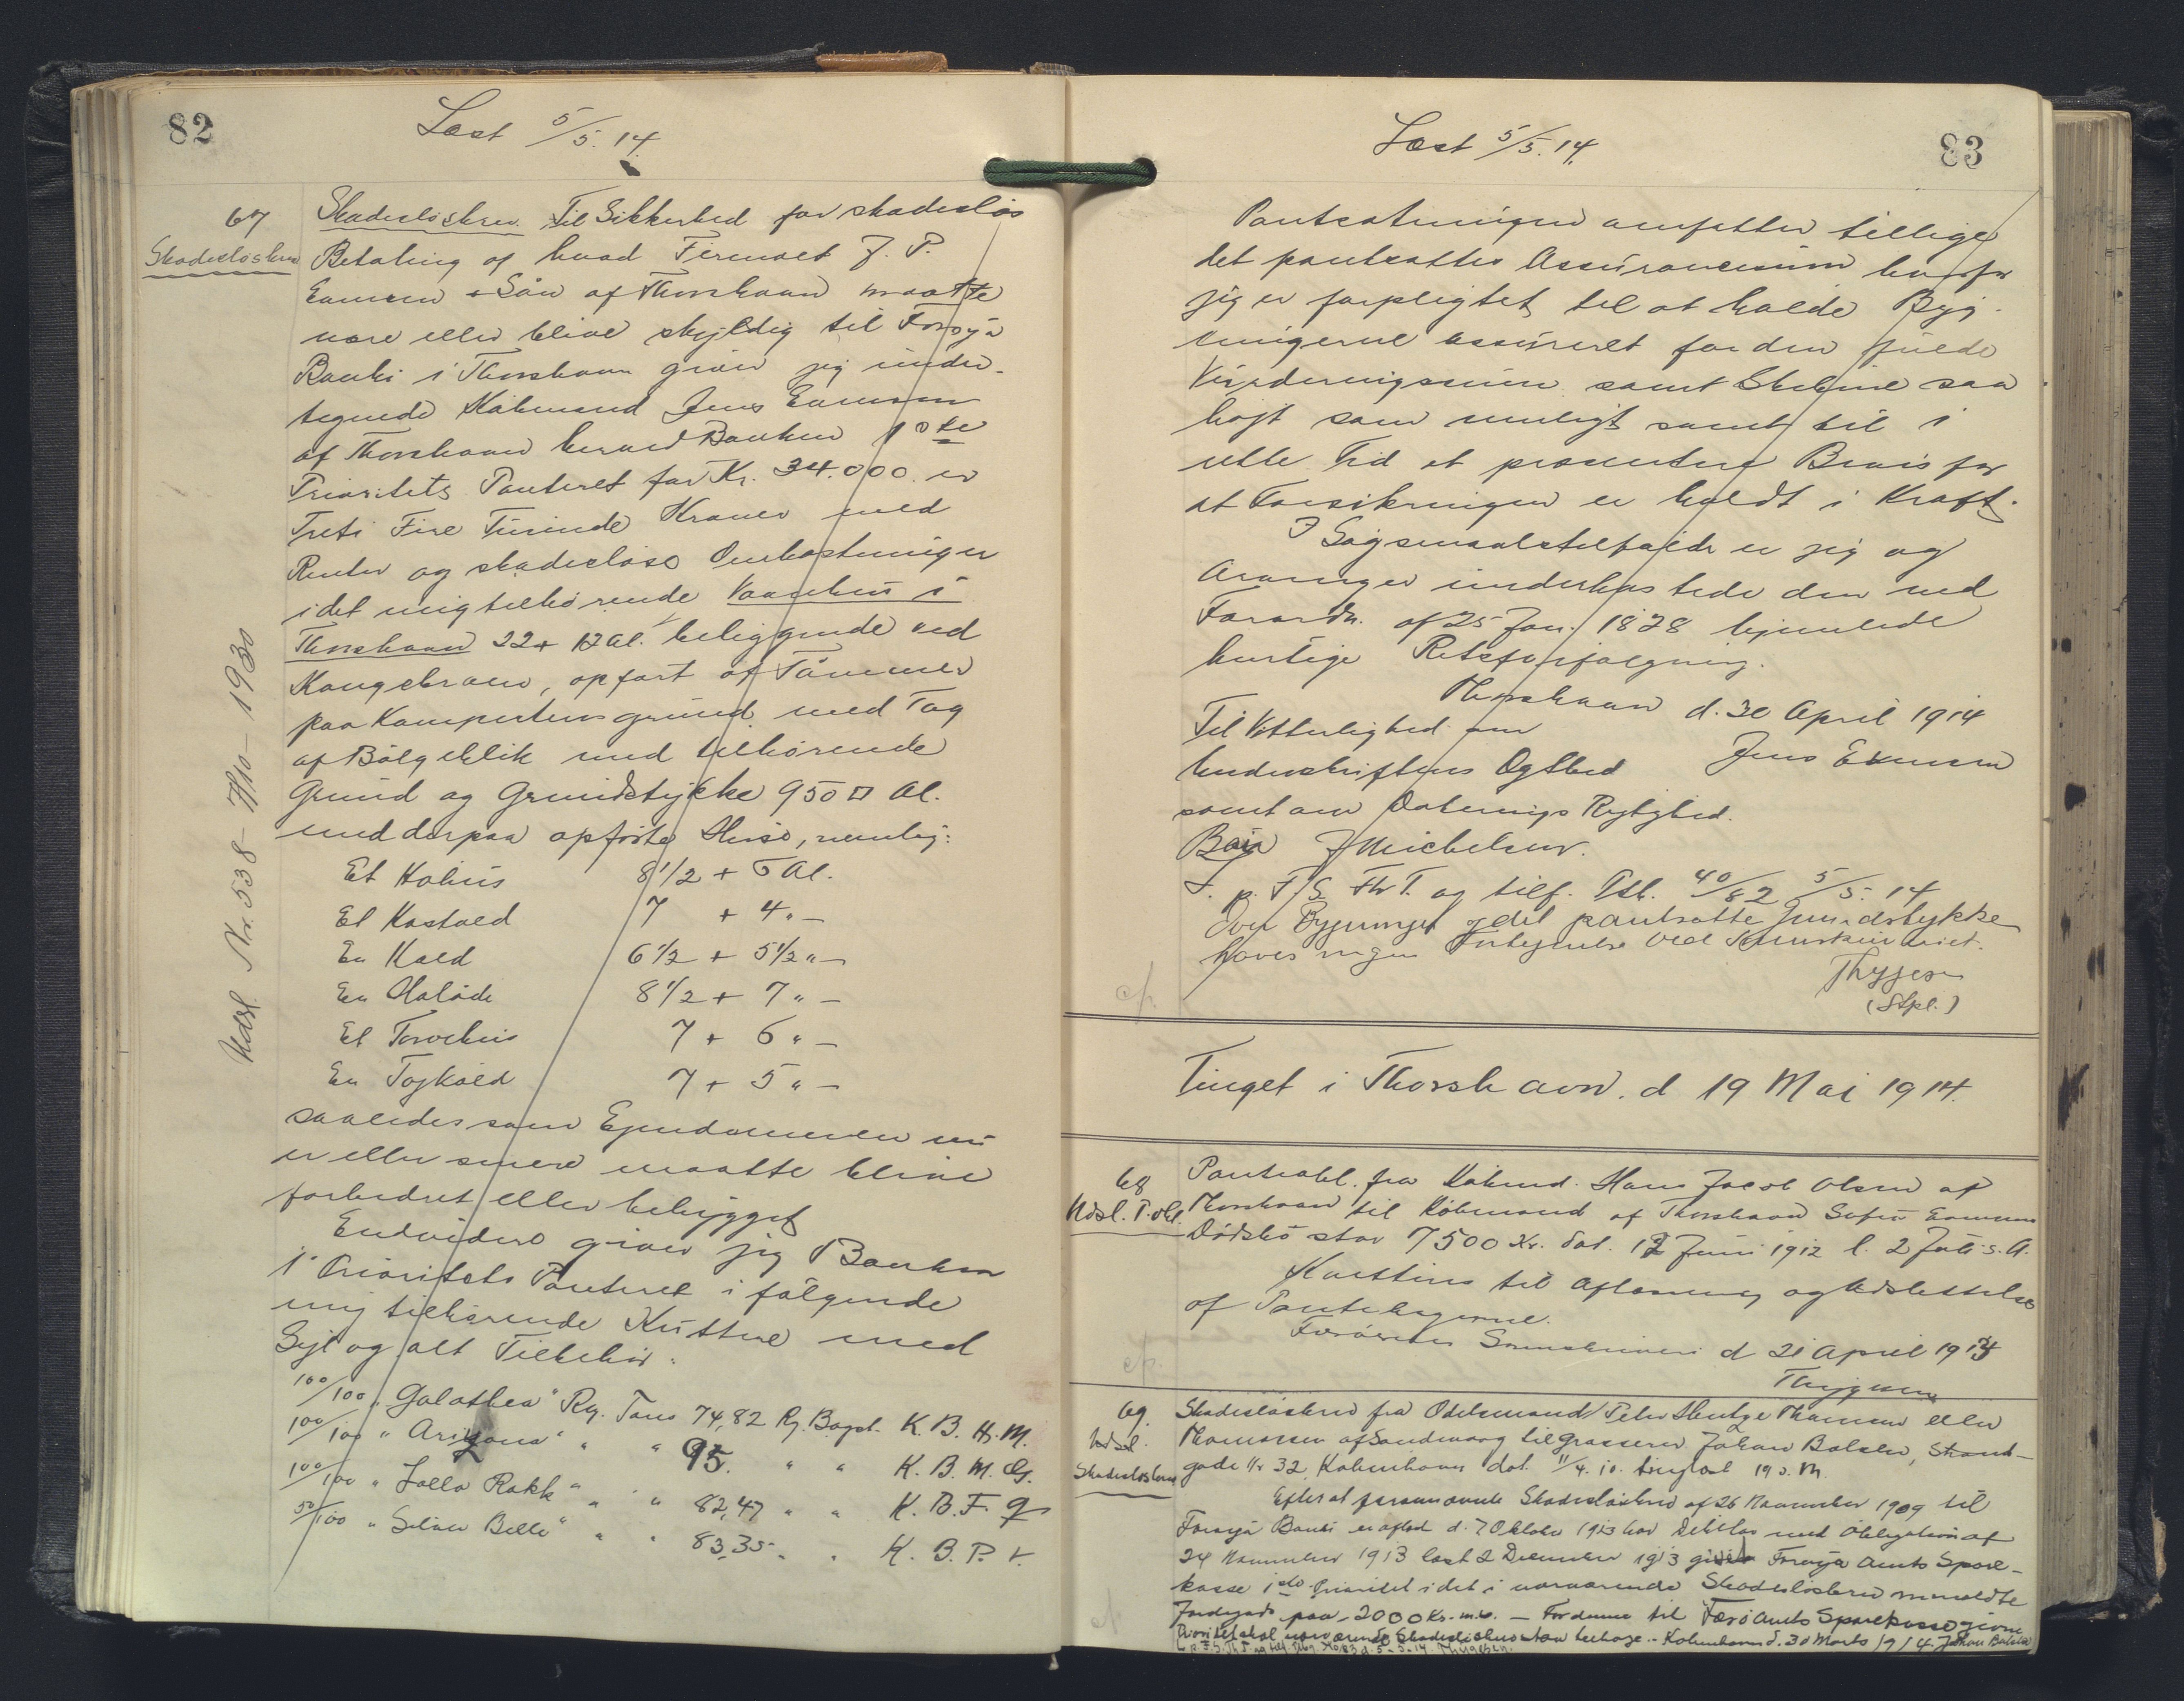 82
Læst 5/5. 14.
67
Skadesløsbrev
Skadesløsbrev. Til Sikkerhed for skadesløs
Betaling af hvad Firmaet J. P.
Evensen & Sön af Thorshavn maatte
være eller blive skyldig til Foroya
Banki i Thorshavn giver jeg under-
tegnede Köbmand Jens Evensen
af Thorshavn herved Banken 1ste
Prioritets Panteret for Kr. 34.000 er
Treti Fire Tusinde Kroner med
Renter og skadesløse Omkostninger
i det mig tilhørende Vaanhus i
Thorshavn 22 + 12 Al. beliggende ved
Kongebroen, opført af Tömmer
paa Kampestensgrund med Tag
af Bölgeblik med tilhørende
Grund og Grundstykke 950 □ Al.
med derpaa opførte Huse, nemlig:
Et Kohus 8 1/2 + 5 Al.
Et Kostald 7 + 4 " —
En Kald 6 1/2 + 5 1/2 " —
En Hølade 8 1/2 + 7 " —
Et Torvehus 7 + 6 " —
En 7 + 5 " —
saaledes som Ejendommen nu
er eller senere maatte blive
forbedret eller bebygget
Endvidere giver jeg Banken
1' Prioritets Panteret i følgende
mig tilhørende Kuttere med
Sejl og alt Tilbehør:
100/100 "Galathea" Rg. Tons 74,82 Rg. Bogst. K. B. H. M.
100/100 " Arizona " " " 95. " " K. B. M. G.
100/100 " Rokk " " " 82,47 " " K. B. F. g
50/100 " Silver Belle " " " 83,35 " " K. B. P. v.
Udsl. Nr. 538 - 7/10 - 1930
83
Læst 5/5. 14.
Pantsætningen omfatter tillige
det pantsattes Assurancesum hvorfor
jeg er forpligtet til at holde Byg-
ningerne assureret for den fulde
Vurderingssum samt Skibene saa
højt som muligt samt til i
rette Tid at præsentere Bevis for
at Forsikringen er holdt i Kraft.
I Søgsmaalstilfælde er jeg og
Arvinger underkastede den ved
Forordn. af 25 Jan. 1828 hjemlede
hurtige Retsforfølgning.
Thorshavn d. 30 April 1914
Til Vitterlighed om
Underskriftens Ægthed Jens Evensen
samt om Dateringens Rigtighed.
J Michelsen.
p. F/S Th T. og tilf. Tsb. 40/82 5/5. 14
Over Bygninger og det pantsatte Grundstykke
haves ingen Fortegnelse ved Sorenskriveriet.
Thygesen
(Stpl.)
cf.
Tinget i Thorshavn. d 19 Mai 1914.
68
Udsl. P. obl.
Panteobl. fra Købmd. Hans Jacob Olsen af
Thorshavn til Købmand af Thorshavn Sofus Evensens
Dödsbo stor 7500 Kr. dat. 12 Juni 1912 l. 2 Juli s. A.
Kvittins til Aflæsning og Udslettelse
af Pantebøgerne.
Færøernes Sorenskriveri d 21 April 1914
Thygesen
cf.
69.
Udsl.
Skadesløsbrev
Skadesløsbrev fra Odelsmand Peter Thomsen eller
Thomassen af Sandevaag til Grosserer Johan Balslev, Strand-
gade Nr 32 København dat. 11/4. 10. tinglæst 19 s. M.
Efter at förnævnte Skadesløsbrev af 26 November 1909 til
Foroya Banki er aflöst d. 7 Oktober 1913 har Debitor med Obligation af
24 November 1913 læst 2 December 1913 givet Foroya Amts Spare-
kasse 1ste Prioritet i det i nærværende Skadesløsbrev ommeldte
Jordegods paa 2000 Kr. m.v. — Fordenne til Færø Amts Sparekasse givne
Prioritet skal nærværende Skadesløsbrev staa tilbage.- København d. 30 Marts 1914. Johan Balslev